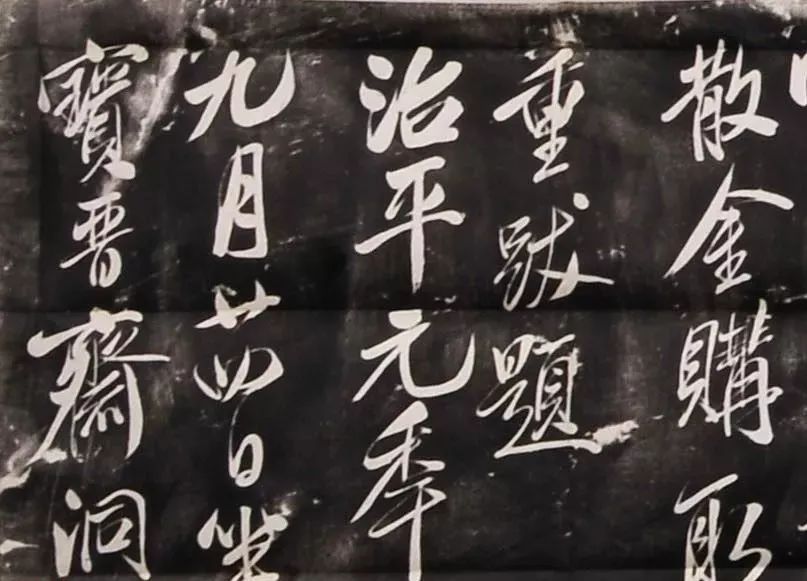 散金購取
重跋題
治平元秊
九月廿四日坐
寶晉齋洞